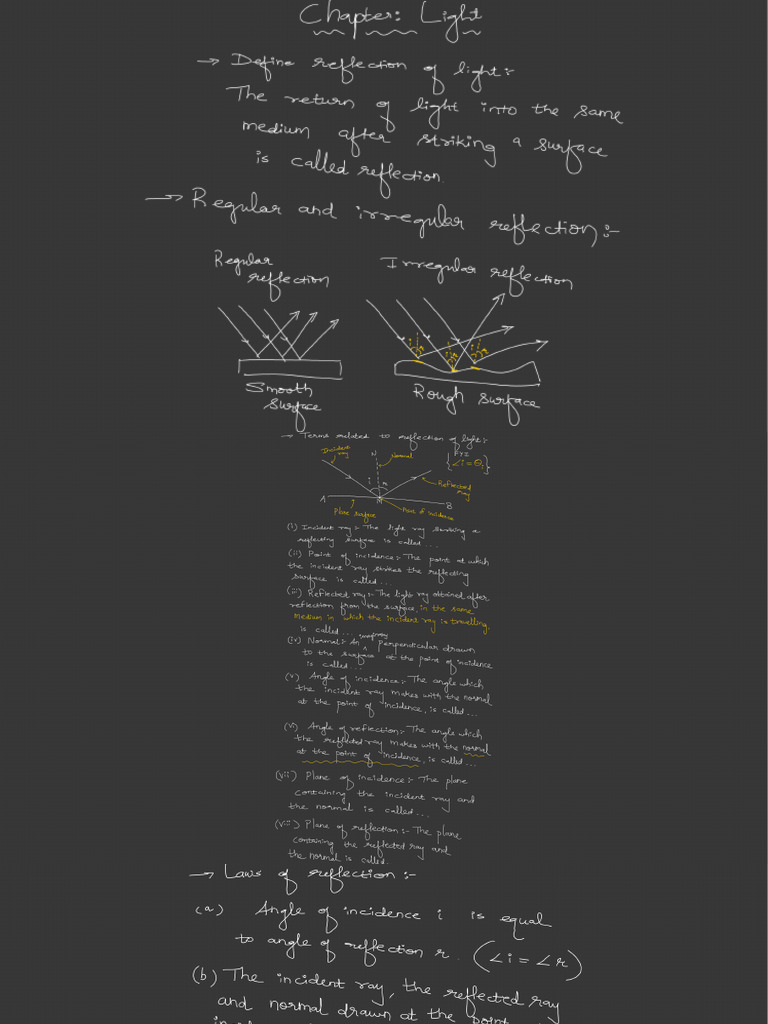 Chapter: Light
→ Define reflection of light:-
The return of light into the same
medium after striking a surface
is called reflection.
→ Regular and irregular reflection:-
Regular
reflection
Irregular reflection
i r
i r
i r
Smooth
surface
Rough surface
→ Terms related to reflection of light:-
Incident
ray
N
Normal
FYI
{∠i = Θi}
i r
Reflected
ray
A
M
B
Plane surface
Point of incidence
(i) Incident ray:- The light ray striking a
reflecting surface is called...
(ii) Point of incidence:- The point at which
the incident ray strikes the reflecting
surface is called...
(iii) Reflected ray:- The light ray obtained after
reflection from the surface, in the same
medium in which the incident ray is travelling,
is called...
(iv) Normal:- An imaginary perpendicular drawn
to the surface at the point of incidence
is called...
(v) Angle of incidence:- The angle which
the incident ray makes with the normal
at the point of incidence, is called...
(vi) Angle of reflection:- The angle which
the reflected ray makes with the normal
at the point of incidence, is called...
(vii) Plane of incidence:- The plane
containing the incident ray and
the normal is called...
(viii) Plane of reflection:- The plane
containing the reflected ray and
the normal is called.
→ Laws of reflection:-
(a) Angle of incidence i is equal
to angle of reflection r. (∠i = ∠r)
(b) The incident ray, the reflected ray
and normal drawn at the point